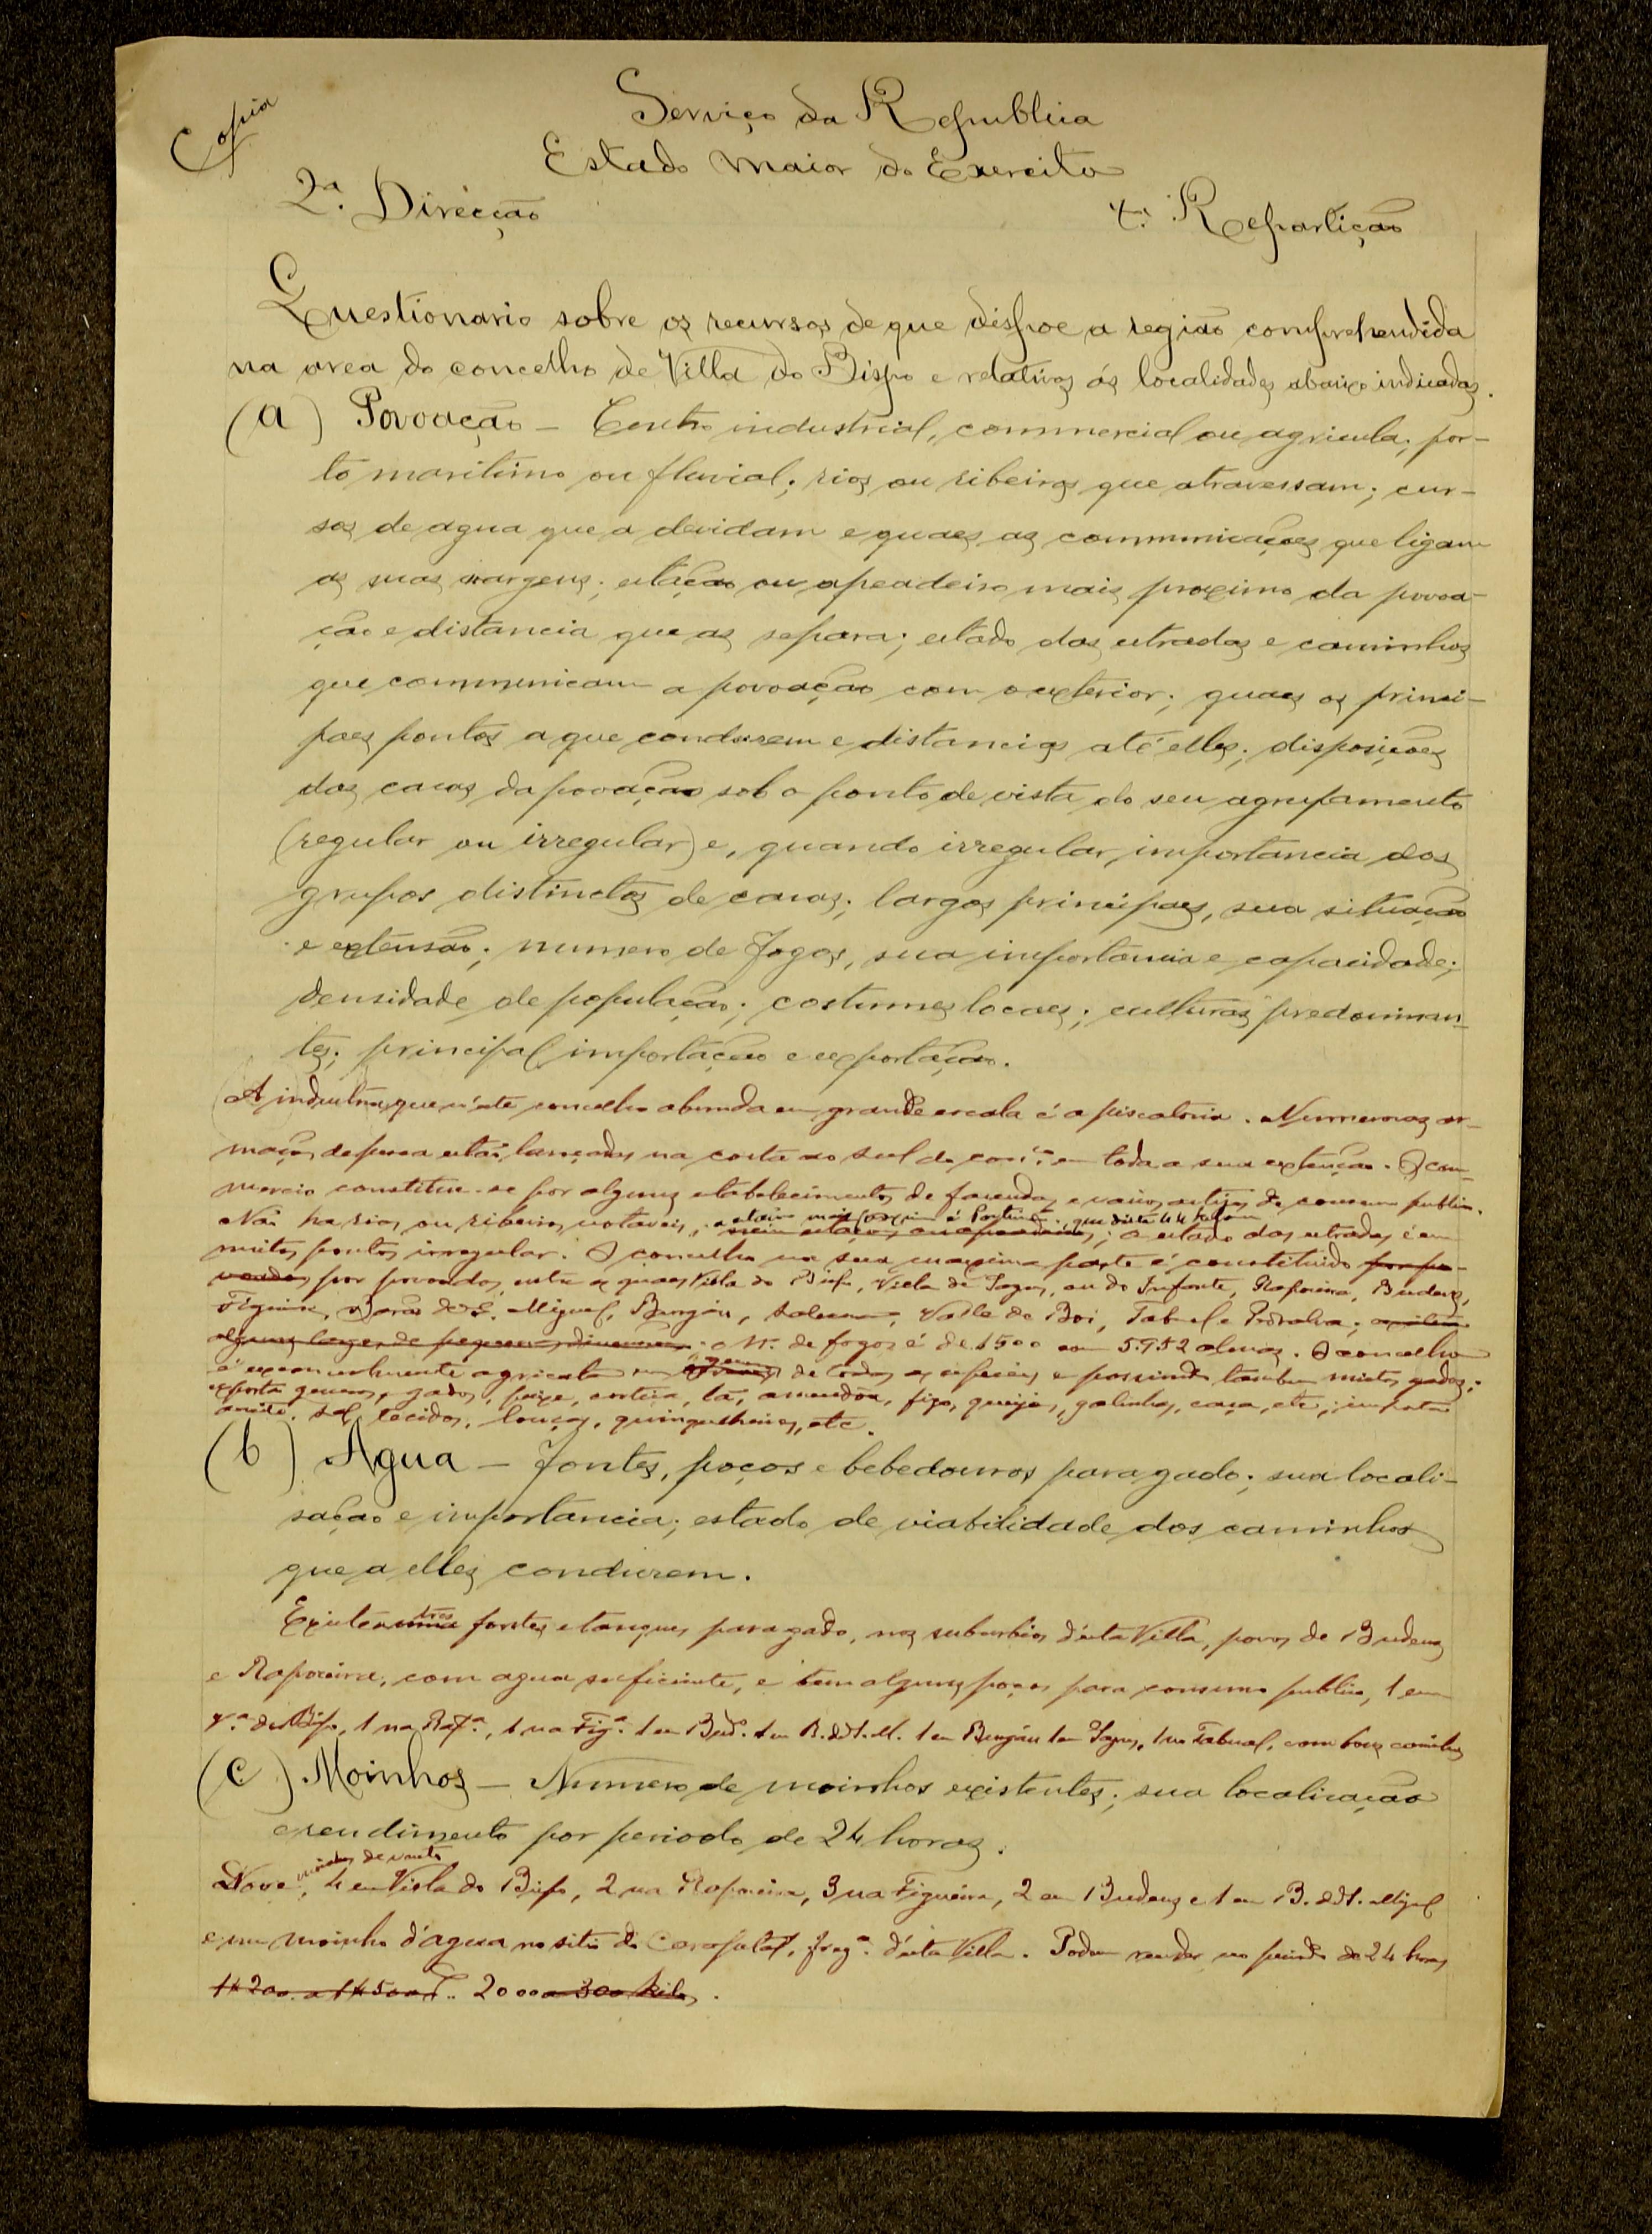 Copia
Serviço da Republica
Estado Maior do Exercito
2ª. Direcção
4ª. Repartição
Questionario sobre os recursos de que dispoe a região comprehendida
na area do concelho de Villa do Bispo e relativos ás localidades abaixo indicadas.
(a) Povoação – Centro industrial, commercial ou agricula; por-
to maritimo ou fluvial; rios ou ribeiros que atravessam; cur-
sos de agua que a devidam e quaes as communicações que ligam
as suas margens; estação ou apeadeiro mais proximo da povoa-
ção e distancia que as separa; estado das estradas e caminhos
que communicam a povoação com o exterior; quaes os princi-
paes pontos a que conduzem e distancias até elles; disposições
das casas da povoação sob o ponto de vista do seu agrupamento
(regular ou irregular) e, quando irregular, importancia dos
grupos distinctos de casas; largos principaes, sua situação
e extensão; numero de fogos, sua importancia e capacidade;
densidade de população; costumes locaes; culturas predominan-
tes; principal importação e exportação.
A industria que n'este concelho abunda em grande escala é a piscatoria. Numerosas ar-
mações de pesca estão lançadas na costa ao sul do conc.º em toda a sua extenção. O com-
mercio constitue-se por alguns estabelecimentos de fazendas e varios artigos de consumo publico.
Não ha rios ou ribeiros notaveis, a estação mais proxima é Portimão que dista 44 kilom
nem estações ou apeadeiros; o estado das estradas é em
muitos pontos irregular. O concelho na sua maxima parte é constituido por po-
voados por povoados, entre os quaes Villa do Bispo, Villa de Sagres, ou do Infante, Raposeira, Budens,
Figueira, Barão de S. Miguel, Burgau, Salema, Valle de Boi, Tabual e Pedralva;
alguns largos de pequenas dimensões. Nº. de fogos é de 1500 com 5952 almas. O concelho
é essencialmente agricola em generos de todas as especies e possuindo tambem muitos gados;
exporta generos, gados, peixe, cortiça, lã, amendoa, figo, queijos, galinhas, caça, etc; importa
azeite, sal, tecidos, louças, quinquilherias, etc.
(b) Agua – fontes, poços e bebedouros para gado; sua locali-
sação e importancia; estado de viabilidade dos caminhos
que a elles conduzem.
tres
Existem uma fontes e tanques para gado, nos suburbios d'esta Villa, povos de Budens
e Raposeira, com agua suficiente, e tem alguns poços para consumo publico, 1 em
Vª. do Bispo, 1 na Rapª., 1 na Figª. 1 em Bud. 1 em B. de S. M. 1 em Burgau 1 em Sagres, 1 no Tabual, com bons caminhos
(c) Moinhos – Numero de moinhos existentes; sua localisação
e rendimento por periodo de 24 horas.
moinhos de vento
Nove, 4 em Villa do Bispo, 2 na Raposeira, 3 na Figueira, 2 em Budens e 1 em B. de S. Miguel
e um moinho d'agua no sitio do, fregª. d'esta Villa. Podem render no periodo de 24 horas
1k200 a 1k500 2000 a 300 kilos.